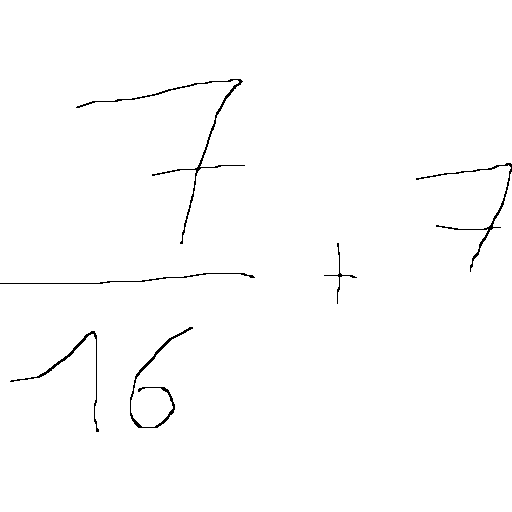 \frac{7}{16} + 7